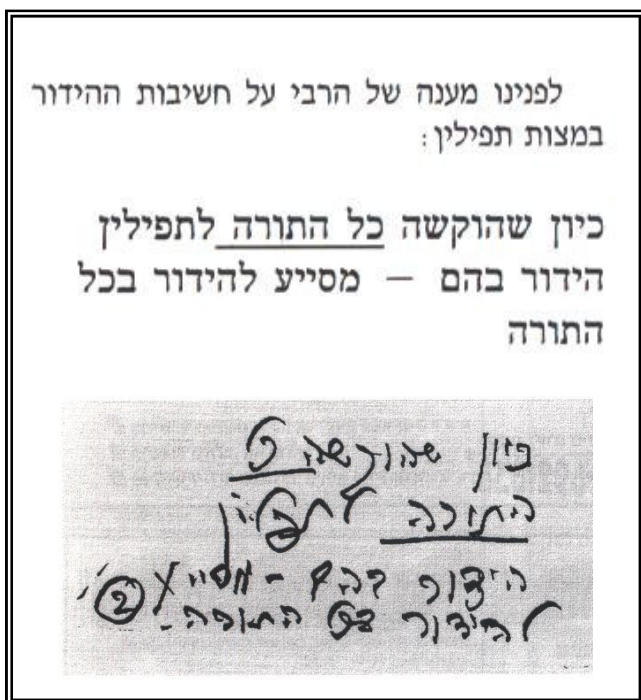 לפנינו מענה של הרבי על חשיבות ההידור
במצות תפילין:
כיון שהוקשה כל התורה לתפילין
הידור בהם — מסייע להידור בכל
התורה
כיון שהוקשה כל
התורה לתפילין
הידור בהם - מסייע
להידור בכל התורה -